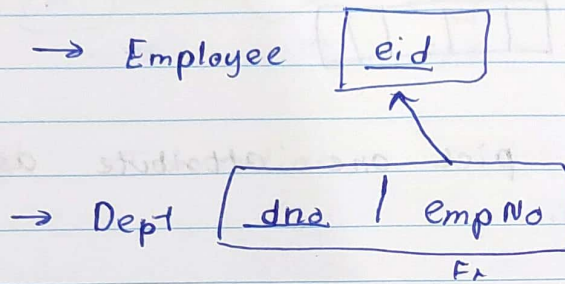 → Employee eid
→ Dept dno | empNo